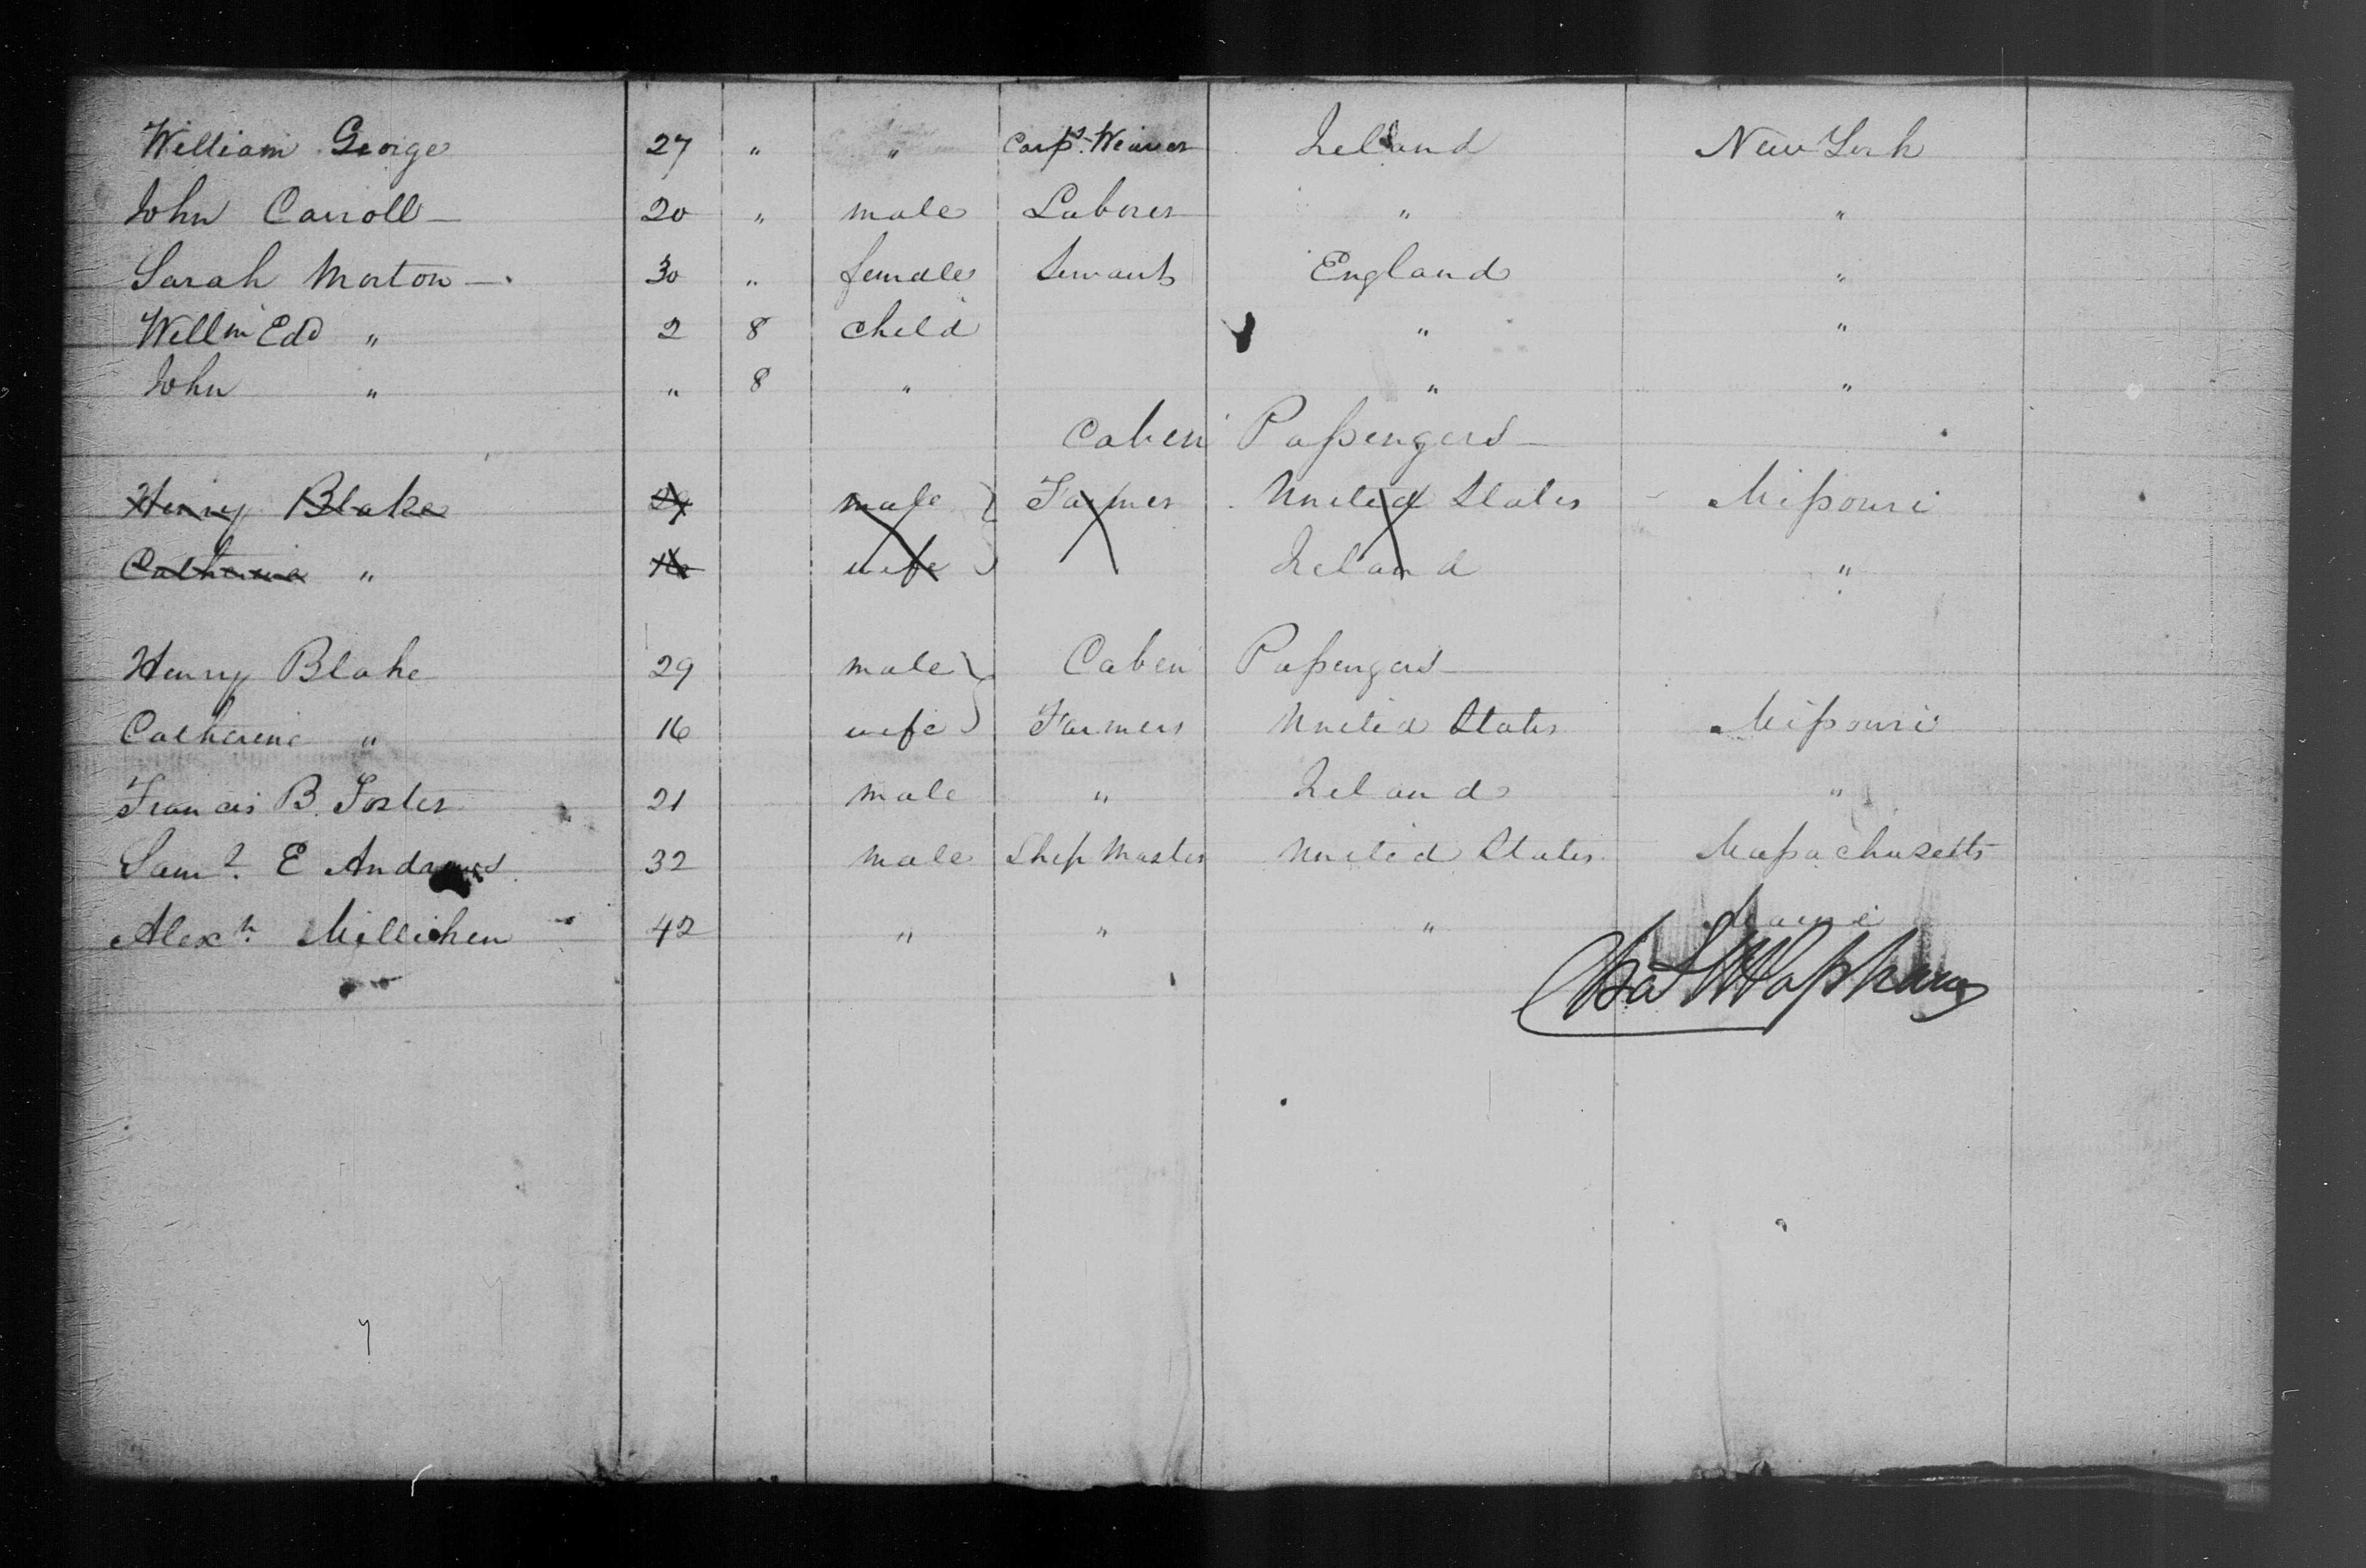 William George 27 " " Carpt. Weaver Ireland New York
John Carroll 20 " male Laborer " "
Sarah Morton 30 " female Servant England "
Willm Edd " 2 8 child " "
John " " 8 " " "
Cabin Passengers
Henry Blake 29 male Farmer United States Missouri
Catherine " 16 wife Ireland "
Henry Blake 29 male Cabin Passengers
Catherine " 16 wife Farmers United States Missouri
Francis B. Foster 21 male " Ireland "
Saml. E Andrews 32 male Ship Master United States Massachusetts
Alexr. Milliken 42 " " " Maine